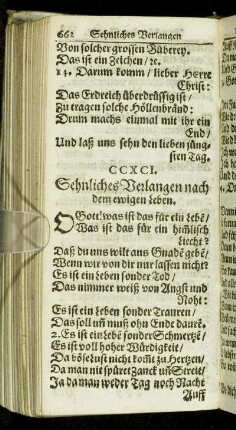 662 Sehnliches Verlangen
Von solcher grossen Büberey.
Das ist ein Zeichen / ꝛc.
14. Darum komm / lieber Herre
Christ:
Das Erdreich überdrüssig ist /
Zu tragen solche Höllenbränd:
Drum machs einmal mit ihr ein
End /
Und laß uns sehn den lieben jüng-
sten Tag.
CCXCI.
Sehnliches Verlangen nach
dem ewigen Leben.
O Gott! was ist das für ein Lebē /
Was ist das für ein him̄lisch
Liecht?
Daß du uns wilt aus Gnadē gebē /
Wenn wir von dir nur lassen nicht?
Es ist ein Leben sonder Tod /
Das nimmer weiß von Angst und
Noht:
Es ist ein Leben sonder Trauren /
Das soll uñ muß ohn Ende daurē.
2. Es ist ein Lebē sonder Schmertzē /
Es ist voll hoher Würdigkeit /
Da böse Lust nicht kom̄t zu Hertzen /
Da man nit spüret Zanck uñ Streit /
Ja da man weder Tag noch Nacht
Auff